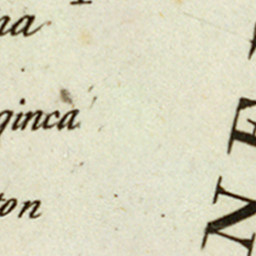 na
ginca
ton
N E